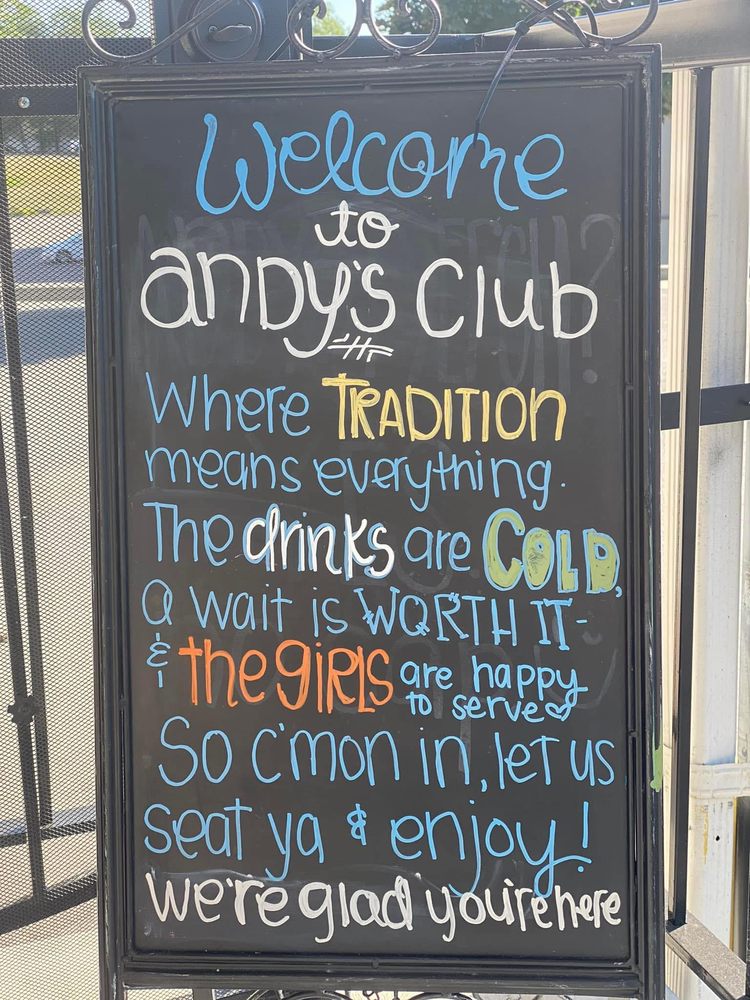 Welcome
to
andy's Club
Where TRADITION
means everything.
The drinks are COLD,
a wait is WORTH IT-
& the giRls are happy
to serve
So c'mon in, let us
seat ya & enjoy!
we're glad you're here